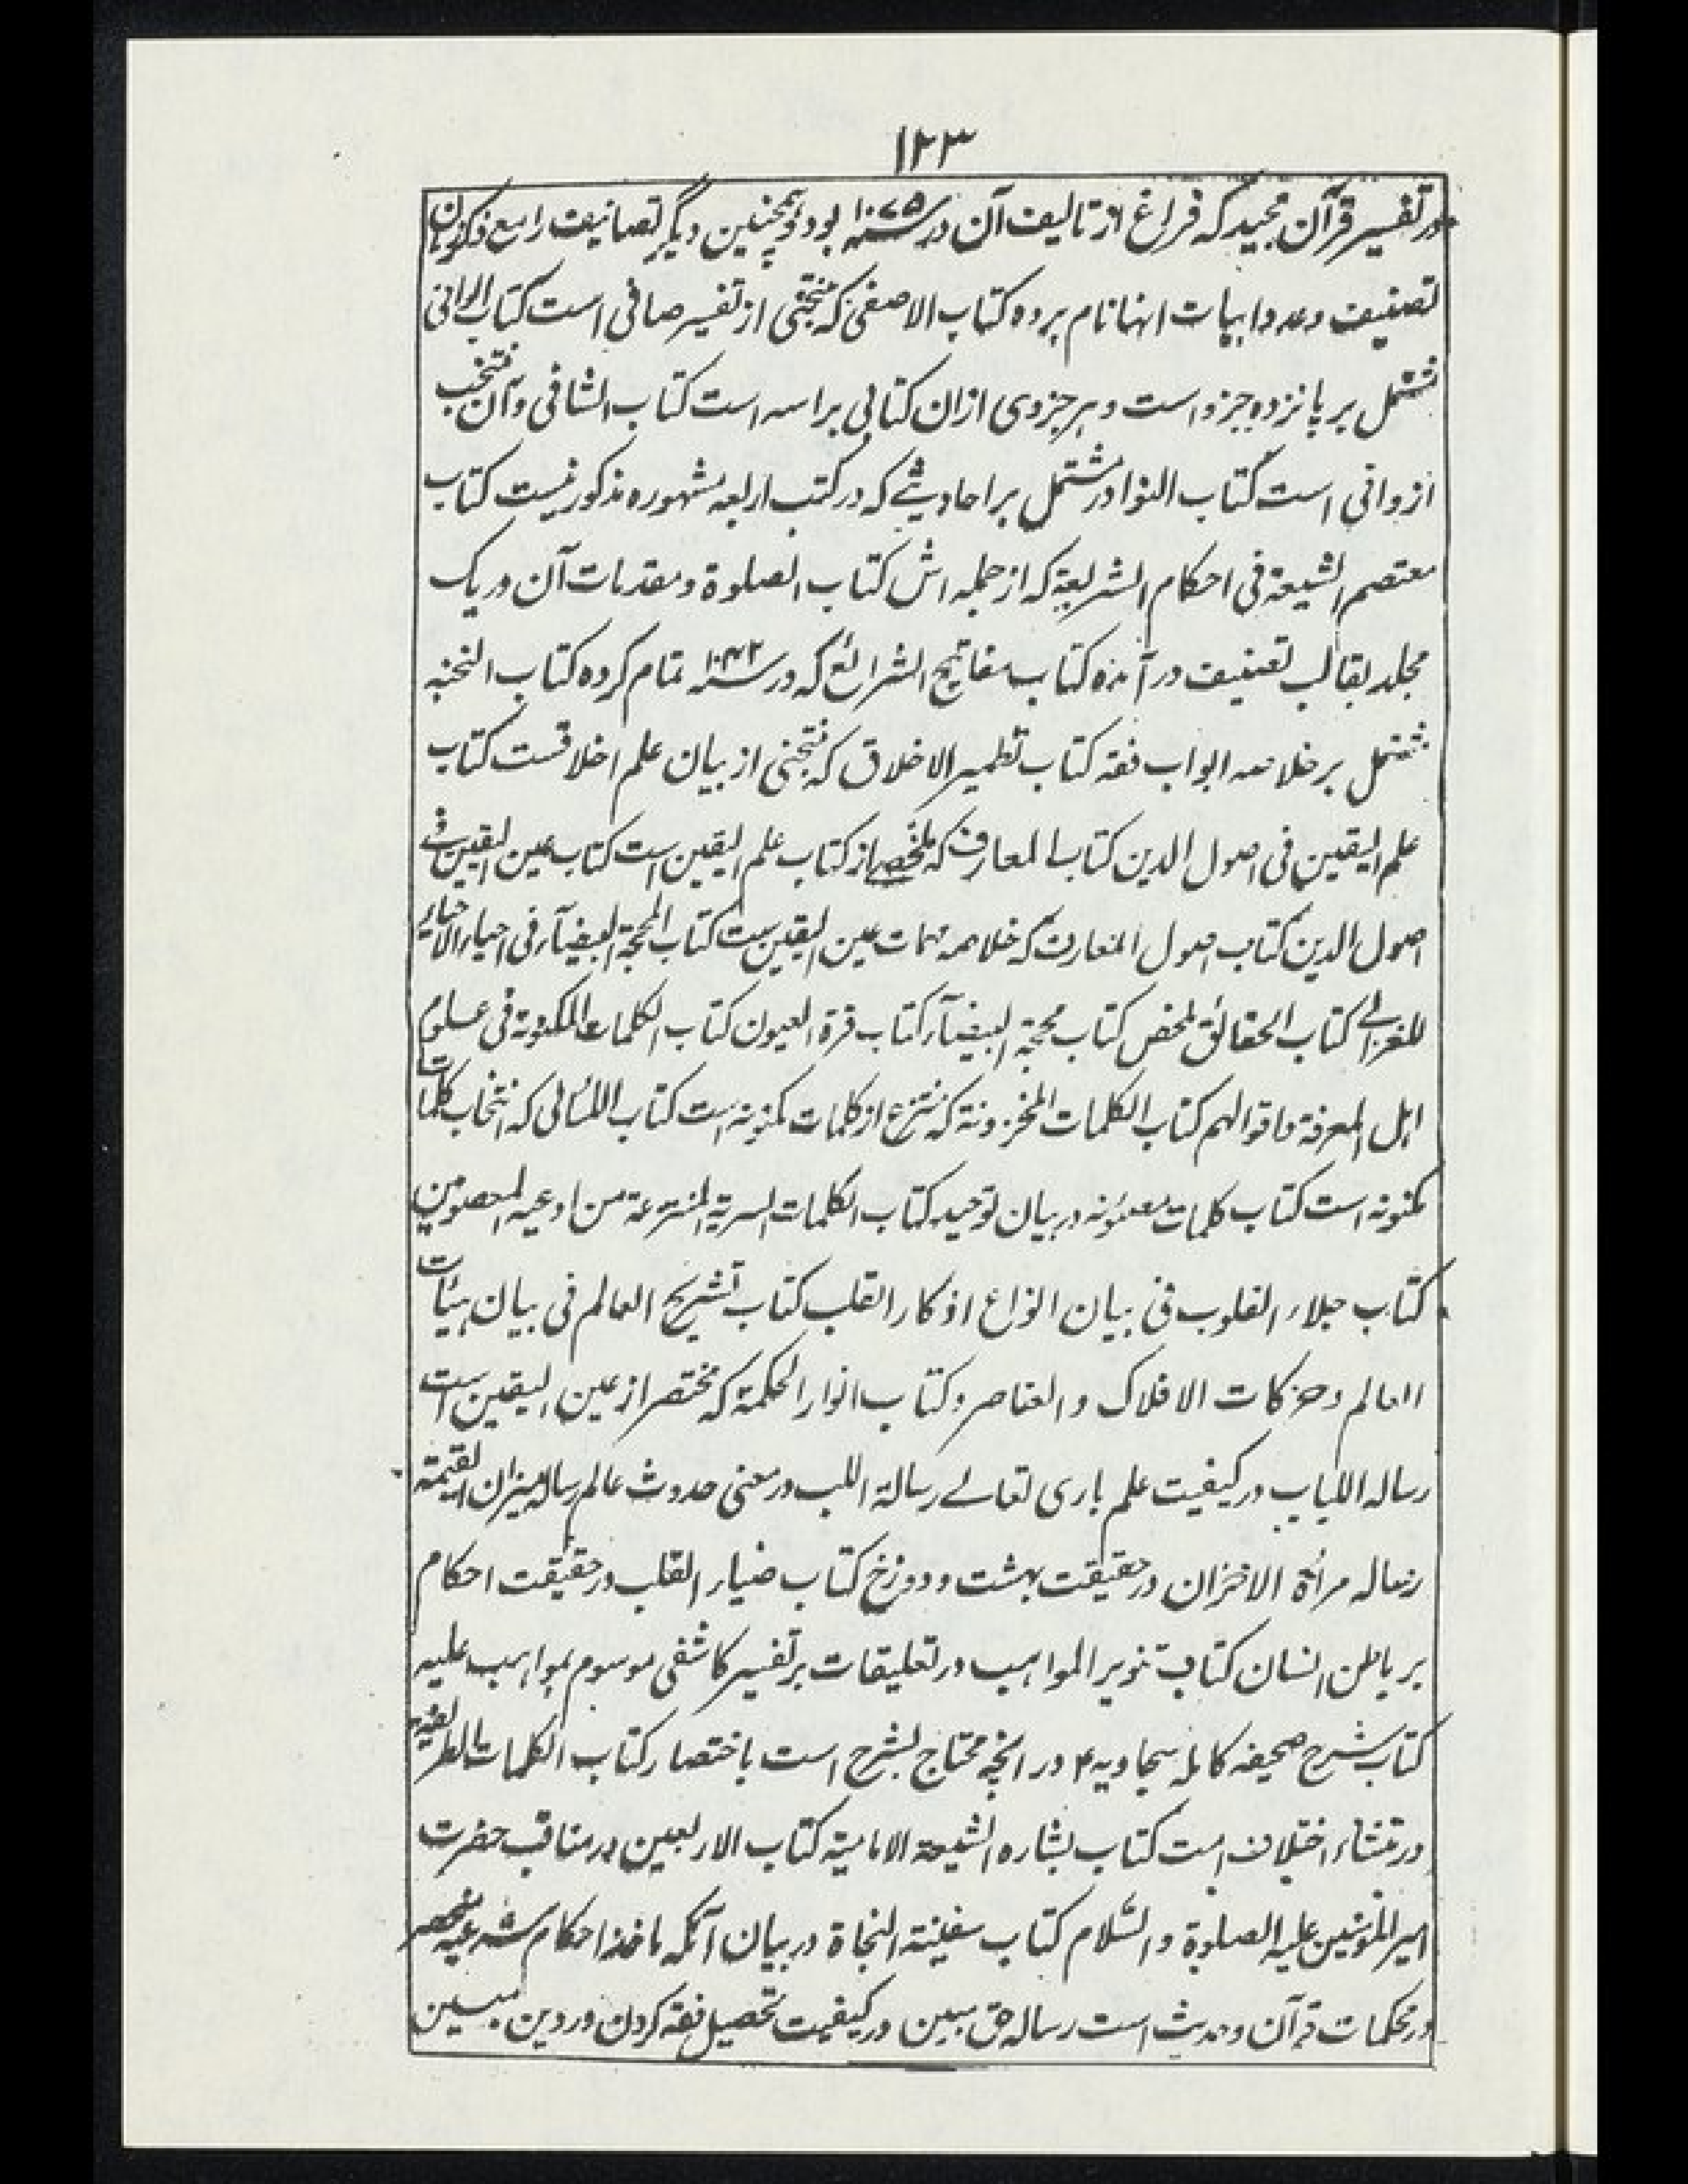 ۱۲۳
در تفسیر قرآن مجید که فراغ از تالیف آن در سنه ۱۰۷۵ بود و همچنین دیگر تصانیف را مع ذکر زمان
تصنیف و عدد ابیات انها نام برده کتاب الاصفی که منتخبی از تفسیر صافی است کتاب الوافی
مشتمل بر پانزده جزو است و هر جزوی ازان کتابی براسه است کتاب الشافی و آن منتخب
از وافی است کتاب النوادر مشتمل بر احادیثی که در کتب اربعه مشهوره مذکور نیست کتاب
معتصم الشیعة فی احکام الشریعة که از جمله اش کتاب الصلوة و مقدمات آن در یک
مجلد بقالب تصنیف در آمده کتاب مفاتیح الشرائع که در سنه ۱۰۴۲ تمام کرده کتاب النخبه
مشتمل بر خلاصه ابواب فقه کتاب تطهیر الاخلاق که منتخبی از بیان علم اخلاقست کتاب
علم الیقین فی اصول الدین کتاب المعارف که ملخصی از کتاب علم الیقین است کتاب عین الیقین فی
اصول الدین کتاب اصول المعارف که خلاصه مهمات عین الیقین ست کتاب المحجة البیضآء فی احیاء الاحیاء
للغزالی کتاب الحقائق ملخص کتاب محجة البیضآء کتاب قرة العیون کتاب الکلمات المکنونة فی علوم
اهل المعرفة و اقوالهم کتاب الکلمات المخزونة که منتزع از کلمات مکنونه است کتاب اللئالی که انتخاب کلمات
مکنونه است کتاب کلمات مضنونه در بیان توحید کتاب الکلمات السریة المنتزعة من ادعیه المعصومین
کتاب جلاء القلوب فی بیان انواع اذکار القلب کتاب تشریح العالم فی بیان هیئات
العالم و حرکات الافلاک و العناصر و کتاب انوار الحکمة که مختصر از عین الیقین است
رساله اللباب در کیفیت علم باری تعالے رسالة اللب در معنی حدوث عالم رساله میزان القیمة
رساله مرآة الاخزان در حقیقت بهشت و دوزخ کتاب ضیاء القلب در حقیقت احکام
بر باطن انسان کتاب تنویر المواهب در تعلیقات بر تفسیر کاشفی موسوم بمواهب علیه
کتاب شرح صحیفه کامله سجادیه ۴ در انچه محتاج بشرح است باختصار کتاب الکلمات الطریفه
در منشاء اختلاف امت کتاب بشاره الشیعة الامامیة کتاب الاربعین در مناقب حضرت
امیر المؤمنین علیه الصلوة و السّلام کتاب سفینة النجاة در بیان آنکه ماخذ احکام شرعیه منحصر
در محکمات قرآن و حدیث است رساله حق مبین در کیفیت تحصیل فقه کردن در دین مبین